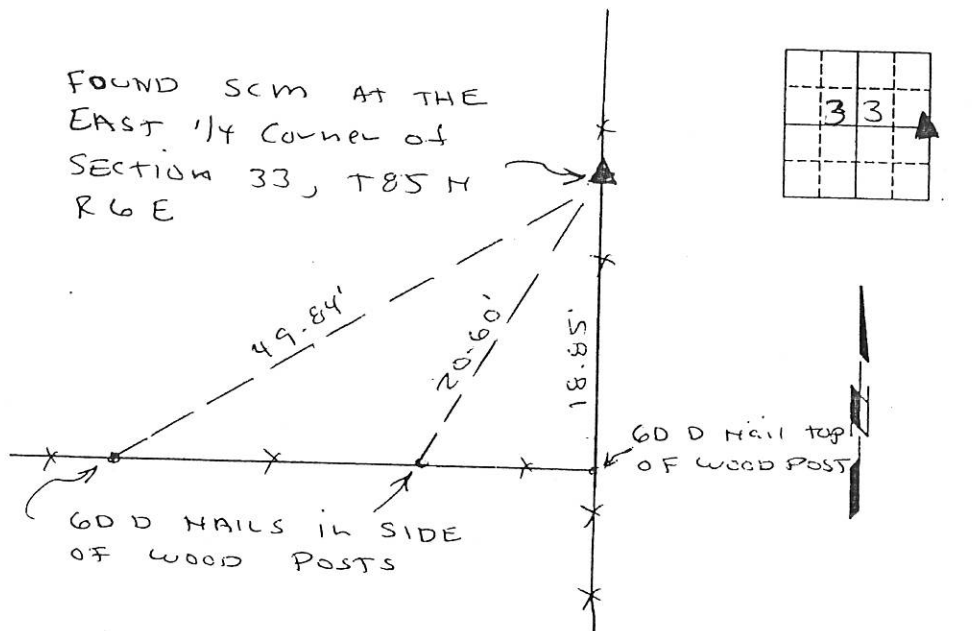 FOUND SCM AT THE
EAST 1/4 Corner of
SECTION 33, T85N
R6E
33
49.84'
20.60'
18.85'
60 D Nail top
OF WOOD POST
60 D NAILS in SIDE
OF WOOD POSTS